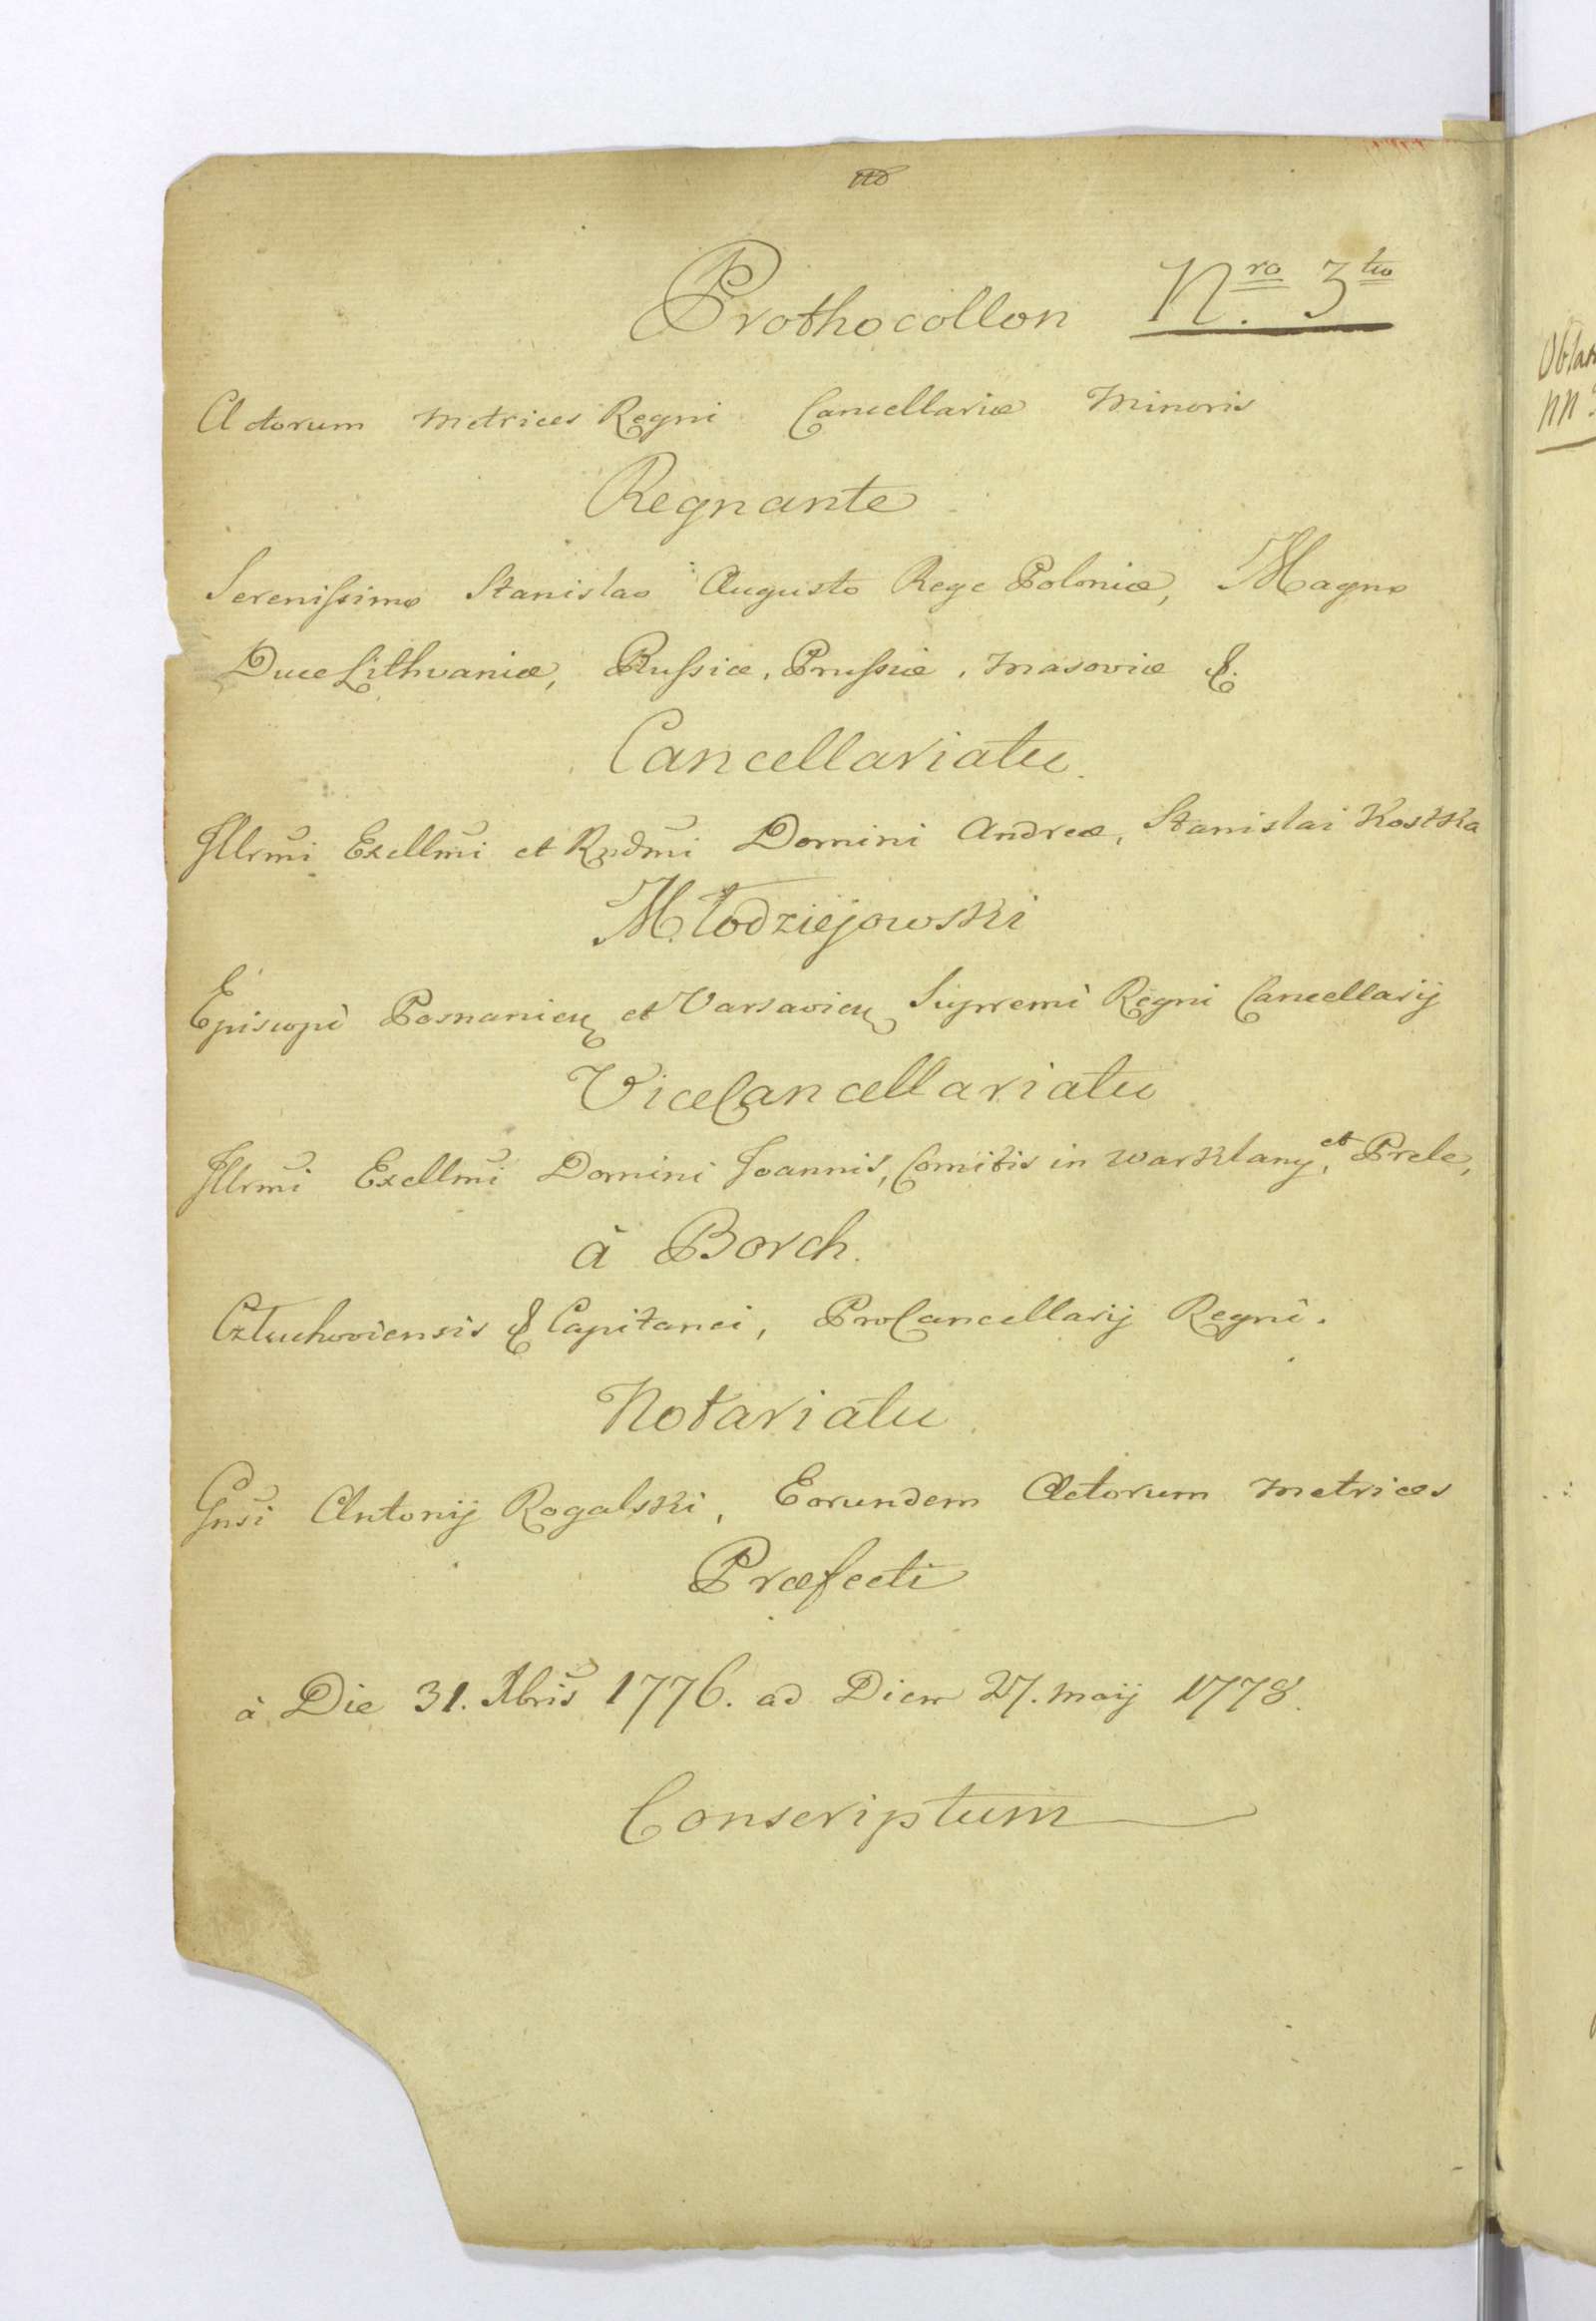 Prothocollon Nro. 3tio
Actorum Metrices Regni Cancellariæ Minoris
Regnante
Serenissimo Stanislao Augusto Rege Poloniæ, Magno
Duce Lithvaniæ, Russiæ, Prussiæ, Masoviæ &.
Cancellariatu.
Illrmi Exellmi et Rndmi Domini Andreæ, Stanislai Kostka
Młodziejowski
Episcopi Posnanien et Varsavien Supremi Regni Cancellarij
ViceCancellariatu
Illrmi Exellmi Domini Joannis, Comitis in Warklany, et Prele,
à Borch.
Człuchoviensis & Capitanei, ProCancellarij Regni.
Notariatu
Gnsi Antonij Rogalski, Eorundem Actorum Metrices
Præfecti
à Die 31. Xbris 1776. ad Diem 27. Maij 1778.
Conscriptum